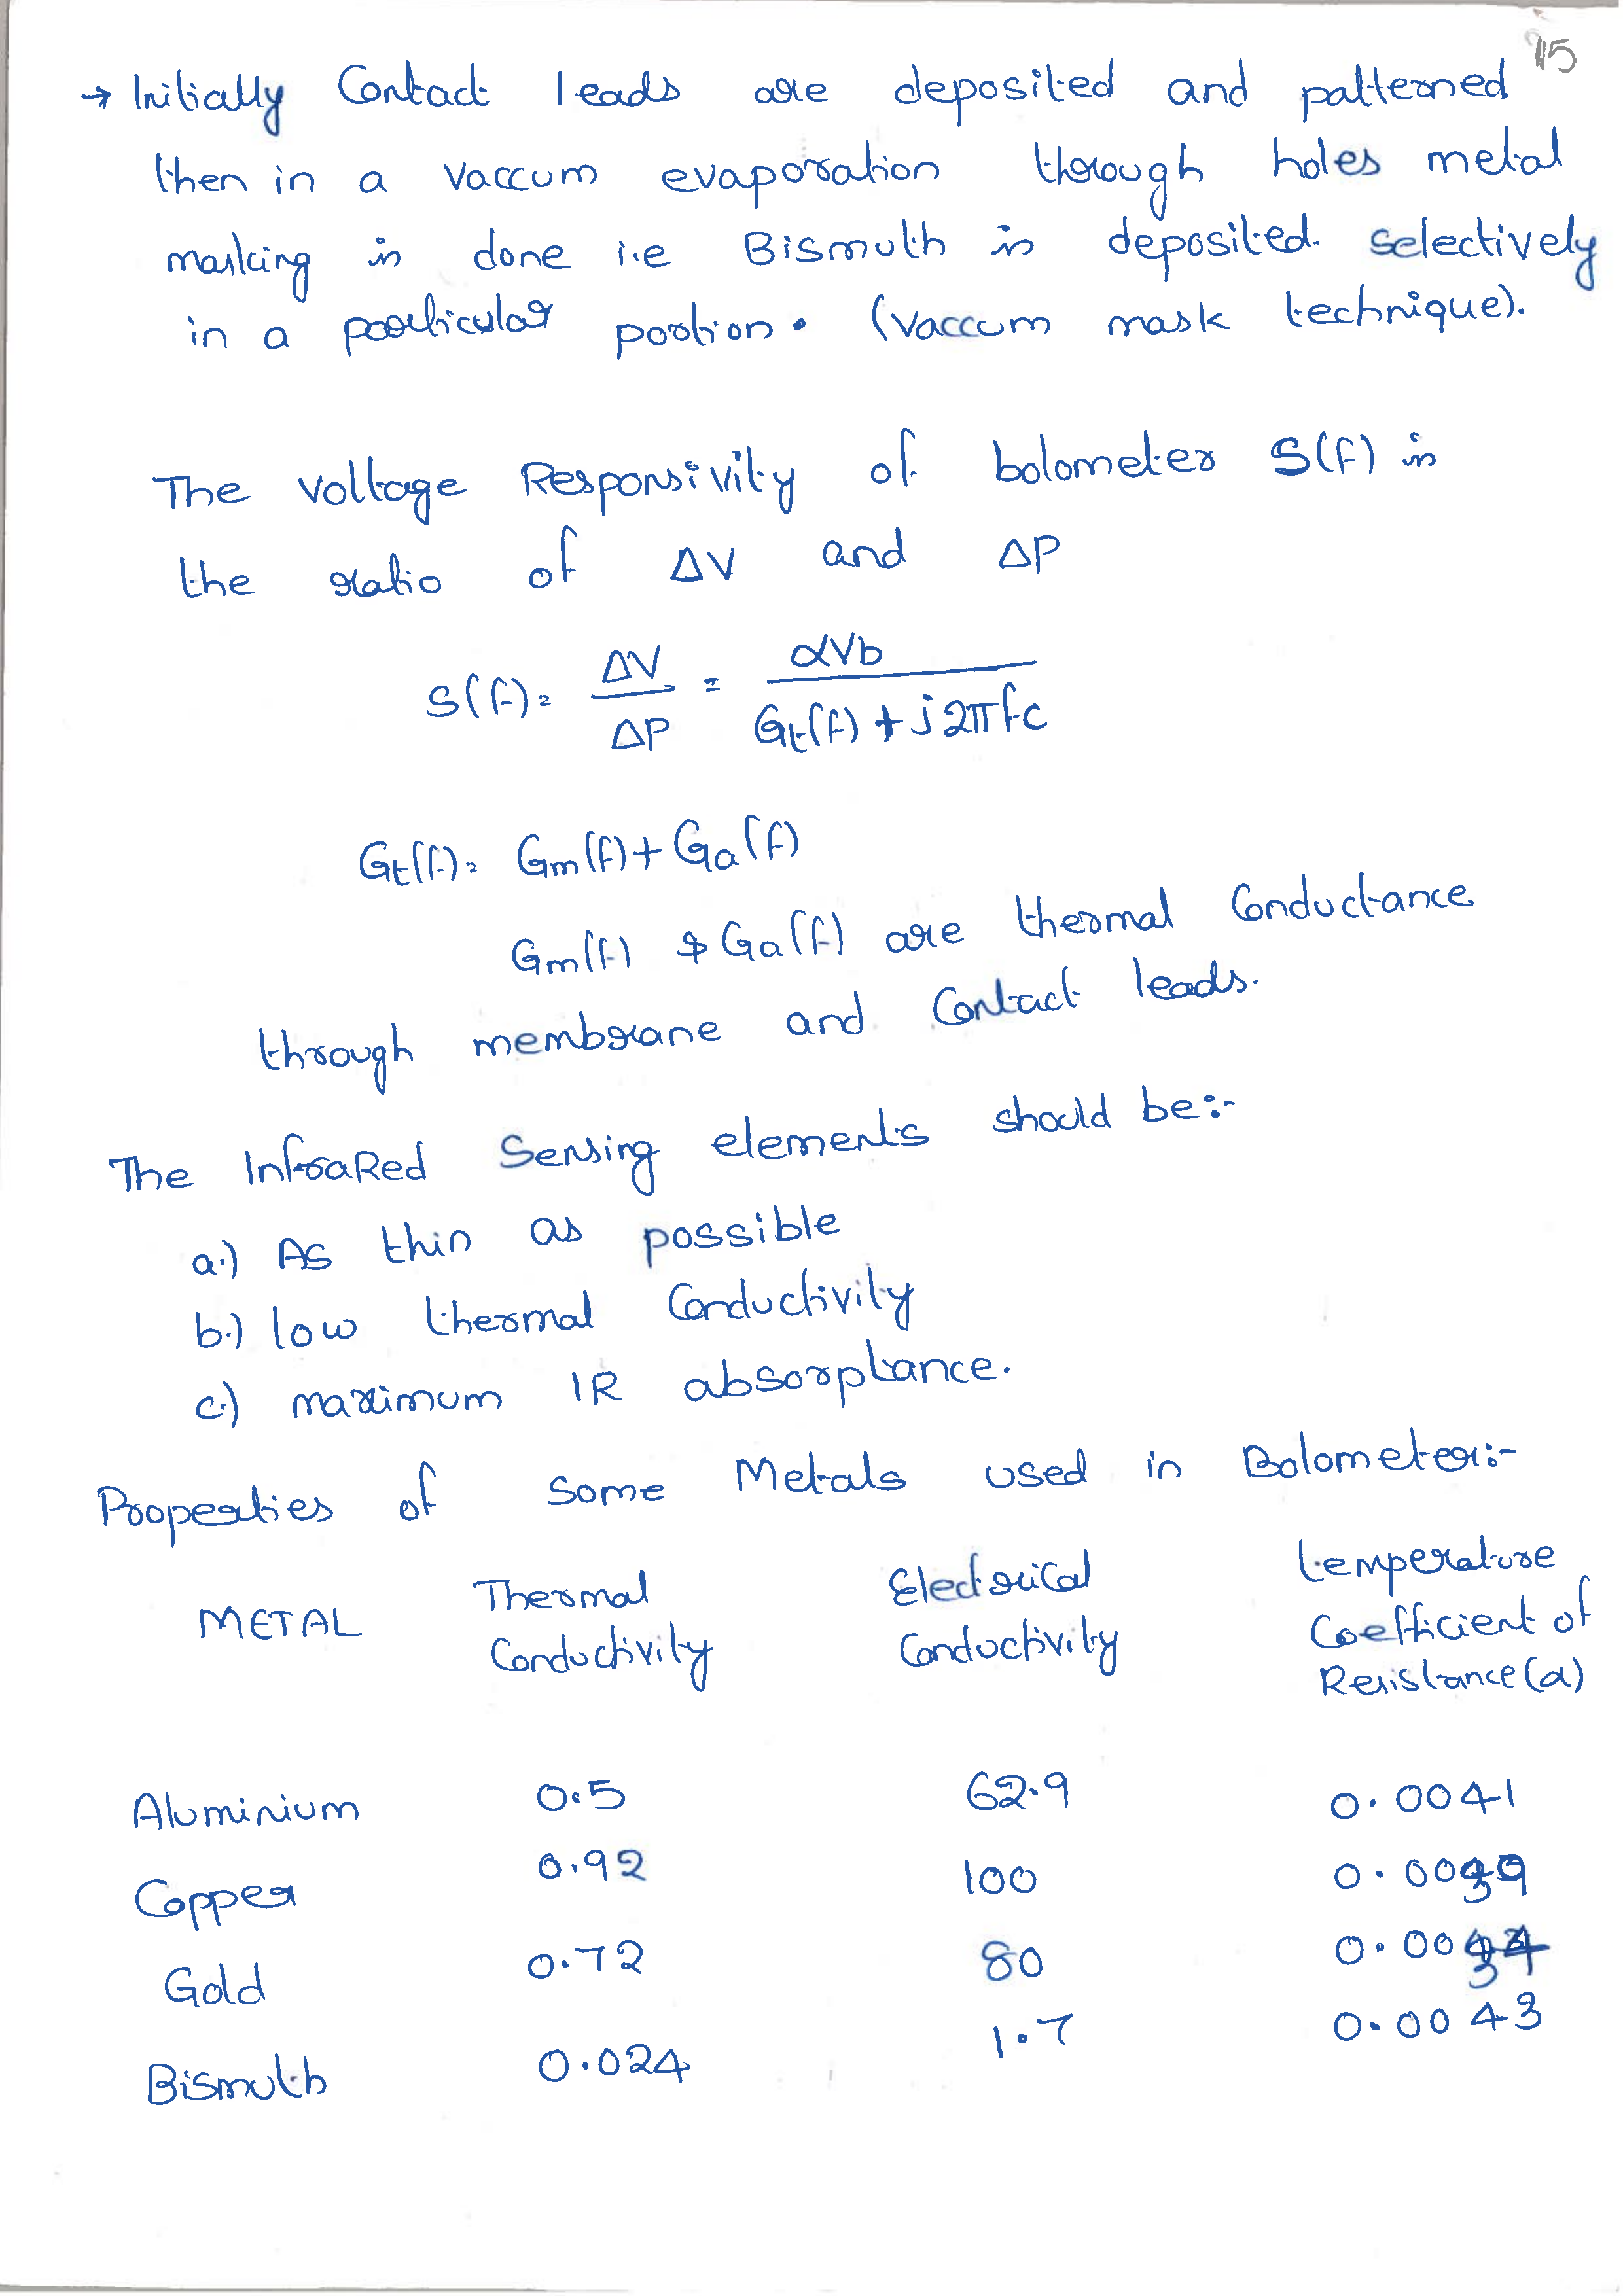 15
→ Initially Contact leads are deposited and patterned
then in a vaccum evaporation through holes metal
masking is done i.e Bismuth is deposited. selectively
in a particular portion. (vaccum mask technique).
The voltage Responsivity of bolometer S(f) is
the ratio of ΔV and ΔP
S(f) = ΔV/ΔP = αVb/(Gt(f) + j2πfc)
Gt(f) = Gm(f) + Ga(f)
Gm(f) & Ga(f) are thermal Conductance
through membrane and Contact leads.
The InfraRed Sensing elements should be:-
a.) As thin as possible
b.) low thermal Conductivity
c.) maximum IR absorptance.
Properties of Some Metals used in Bolometer:-
METAL Thermal Conductivity Electrical Conductivity temperature Coefficient of Resistance (α)
Aluminium 0.5 62.9 0.0041
Copper 0.92 100 0.0039
Gold 0.72 80 0.0034
Bismuth 0.024 1.7 0.0043